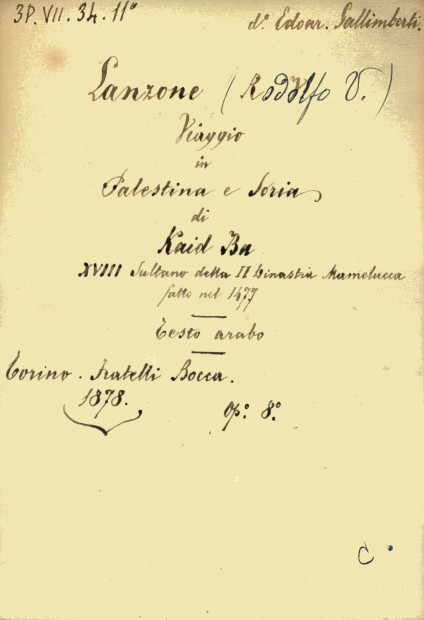 3P. VII. 34. 11°
d.° Edoar. Gallimberti.
Lanzone (Rodolfo V.)
Viaggio
in
Palestina e Soria
di
Kaid Ba
XVIII Sultano della II Dinastia Mamelucca
fatto nel 1477
Testo arabo
Torino. Fratelli Bocca.
1878.
op.° 8.°
C